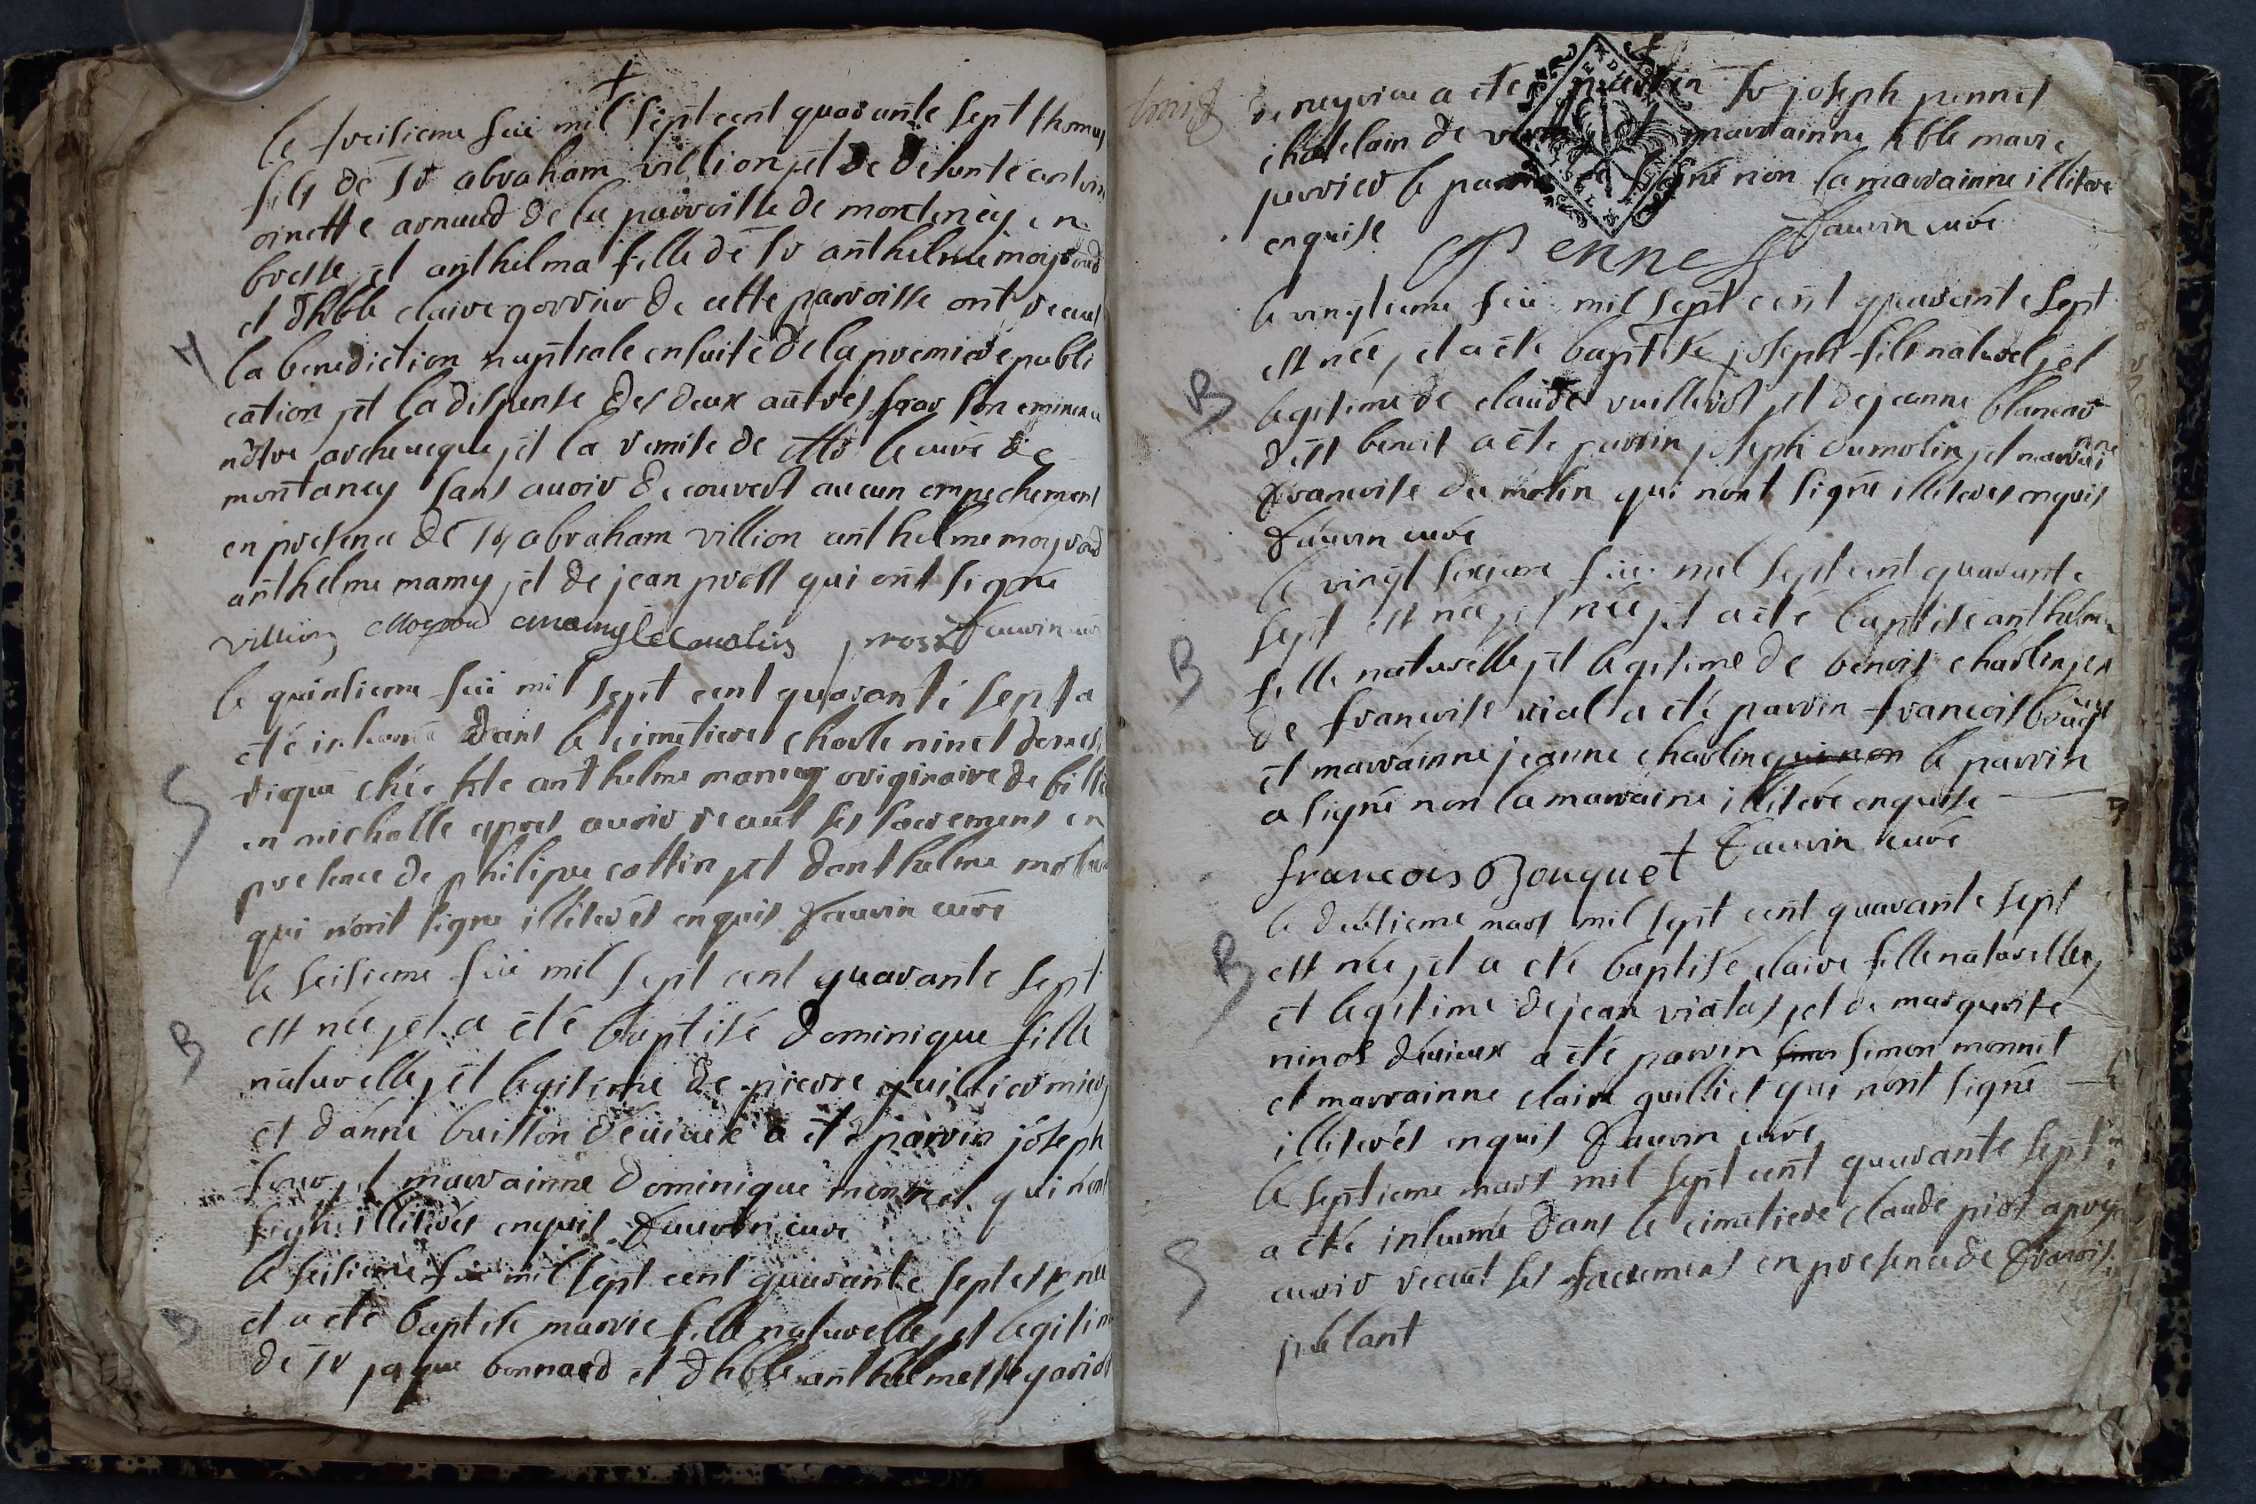 +
le treisieme feü mil sept cent quarante sept thomas
fils de sr abraham villion et de defunte antoi
oinette arnaud de la parroisse de montenëy en
bresse et anthelma fille de sr anthelme moyroud
et dhble claire gorrier de cette parroisse ont receut
M la benediction nuptiale ensuite de la premiere publi
cation et la dispense des deux autres par son eminence
notre archeveque et la remise de mr le curé de
montaney sans avoir decouvert aucun empechement
en presence de sr abraham villion anthelme moyroud
anthelme mamy et de jean prost qui ont signé
villion Moyroud prost fauvin curé
le quinsieme feü mil sept cent quarante sept a
été inhumé dans le cimetiere charle ninet domes
S tique chés sr anthelme mamy originaire de
en michaille apres avoir receut ses sacremens en
presence de philipe cottin et danthelme
qui n'ont signe illiterés enquis fauvin curé
le seisieme feü mil sept cent quarante sept
B est née et a été baptisé dominique fille
naturelle et legitime de pierre
et danne buisson a été parrin joseph
et marrainne dominique monnet qui n'ont
signé illiterés enquis fauvin curé
le seisieme feü mil sept cent quarante sept est née
B et a été baptisé marie fille naturelle et legitime
de sr jaque bonnard et dhble anthelme
de neyrieu a été parrin sr joseph pennet
chatelain de et marrainne hble marie
perrier le parrin signé non la marrainne illiteré
enquise fauvin curé
Pennet
le vingtieme feü mil sept cent quarante sept
est née et a été baptisé joseph fils naturel et
B legitime de claude vuillerot et de jeanne blancard
dist benoit a été parrin joseph dumolin et marrainne
francoise du molin qui n'ont signé illiterés enquis
fauvin curé
le vingt sixieme feü mil sept cent quarante
sept est née et née et a été baptisé anthelme
B fille naturelle et legitime de benoit charlin et
de francoise vial a été parrin francois bouquet
et marrainne jeanne charlin qui non le parrin
a signé non la marraine illiteré enquise
francois Bouquet fauvin curé
le mars mil sept cent quarante sept
B est née et a été baptisé claire fille naturelle
et legitime de jean vialas et de marguerite
ninot a été parrin simon simon monnet
et marrainne claire guilliet qui n'ont signé
illiterés enquis fauvin curé
le septieme mars mil sept cent quarante sept
a été inhumé dans le cimetiere claude apres
S avoir receut ses sacremens en presence de francois